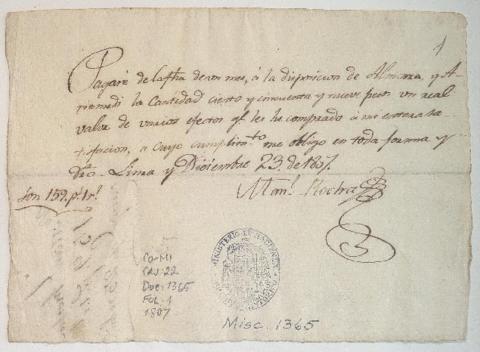 1
Pagaré de la fha de un mes, á la disposicion de Almara, y
la Cantidad ciento y cincuenta y nueve pesos un real
valor de varios efectos qe. les he comprado á mi entera sa-
tisfacion, a cuyo cumplimto. me obligo en toda forma y
dro. Lima y Diciembre 23. de 1807.
Son 159. ps. 1 rl.
Manl.
CO-MI
CAJ-22
Doc: 1365
FOL-1
1807
MINISTERIO DE HACIENDA
Misc. 1365